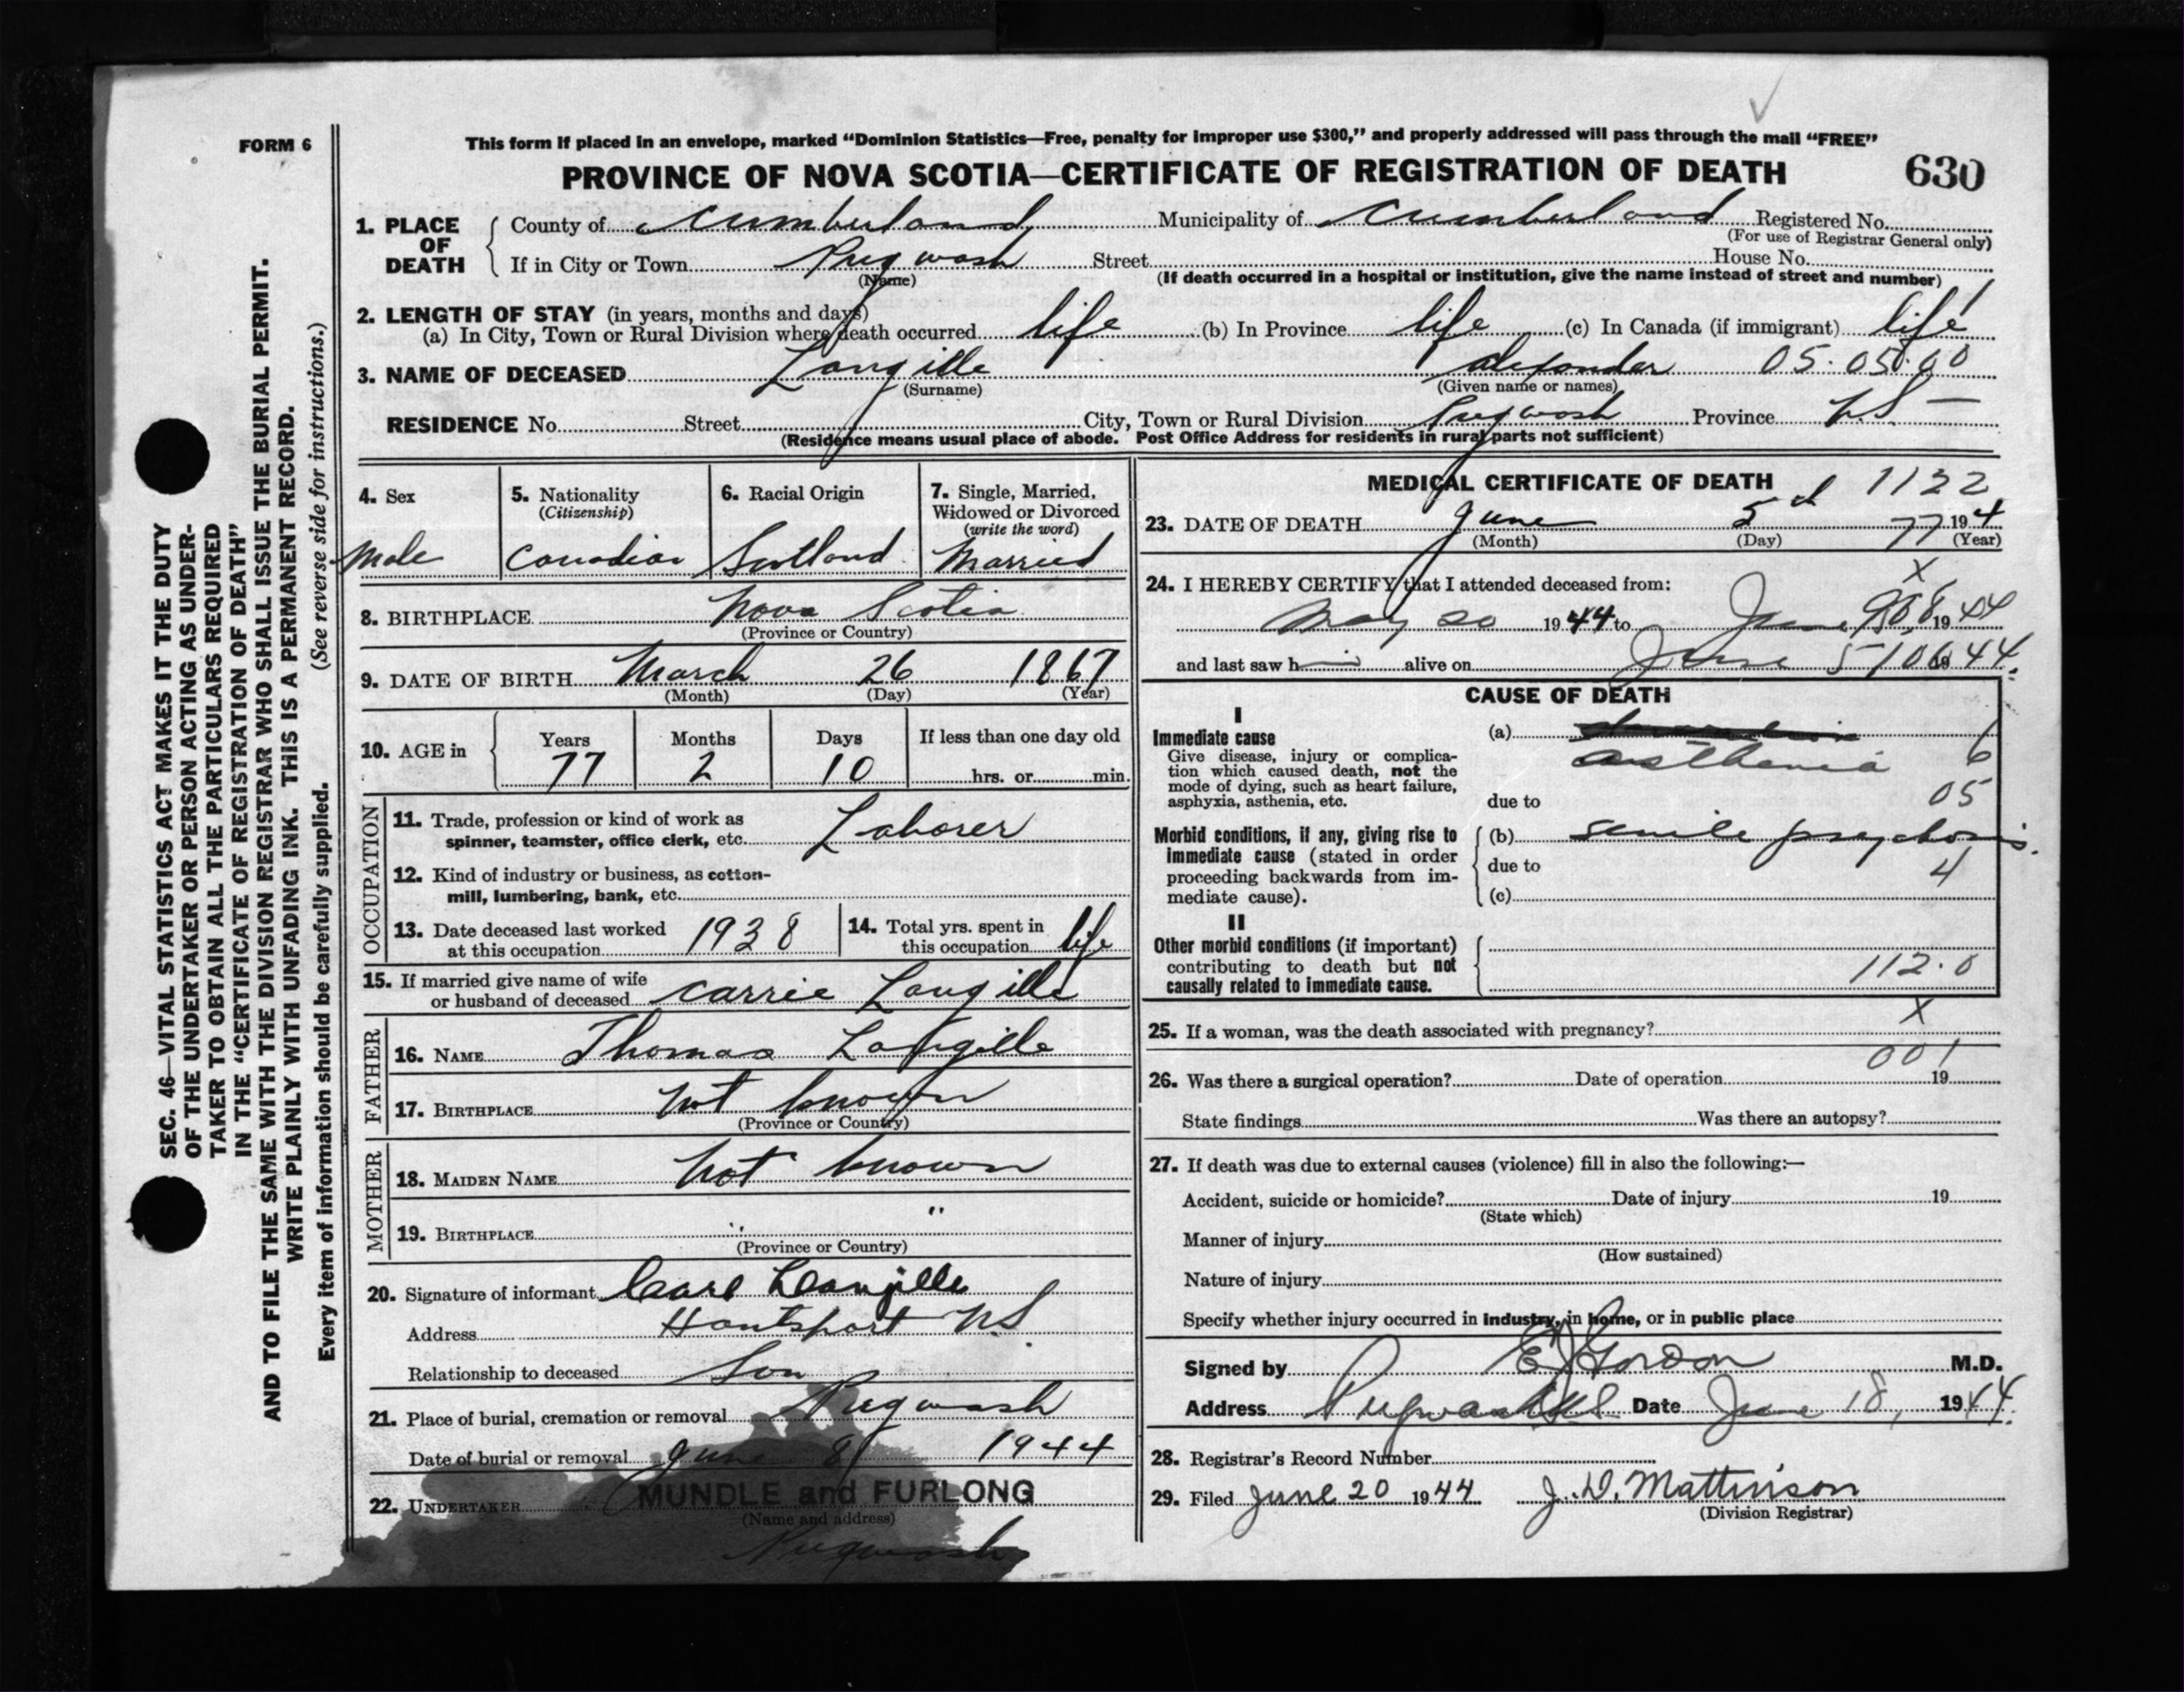 FORM 6
This form if placed in an envelope, marked “Dominion Statistics—Free, penalty for improper use $300,” and properly addressed will pass through the mail “FREE”
PROVINCE OF NOVA SCOTIA—CERTIFICATE OF REGISTRATION OF DEATH 630
1. PLACE OF DEATH County of Cumberland Municipality of Cumberland Registered No.
(For use of Registrar General only)
If in City or Town Pugwash Street House No.
(Name) (If death occurred in a hospital or institution, give the name instead of street and number)
2. LENGTH OF STAY (in years, months and days)
(a) In City, Town or Rural Division where death occurred life (b) In Province life (c) In Canada (if immigrant) life
3. NAME OF DECEASED Langille Alexander 05.05.00
(Surname) (Given name or names)
RESIDENCE No. Street City, Town or Rural Division Pugwash Province N.S —
(Residence means usual place of abode. Post Office Address for residents in rural parts not sufficient)
4. Sex
Male
5. Nationality
(Citizenship)
Canadian
6. Racial Origin
Scotland
7. Single, Married, Widowed or Divorced
(write the word)
Married
8. BIRTHPLACE Nova Scotia
(Province or Country)
9. DATE OF BIRTH March 26 1867
(Month) (Day) (Year)
10. AGE in Years Months Days If less than one day old
77 2 10 hrs. or min.
OCCUPATION
11. Trade, profession or kind of work as
spinner, teamster, office clerk, etc. Laborer
12. Kind of industry or business, as cotton-
mill, lumbering, bank, etc.
13. Date deceased last worked
at this occupation 1938
14. Total yrs. spent in
this occupation life
15. If married give name of wife
or husband of deceased Carrie Langille
FATHER
16. NAME Thomas Langille
17. BIRTHPLACE not known
(Province or Country)
MOTHER
18. MAIDEN NAME not known
19. BIRTHPLACE " "
(Province or Country)
20. Signature of informant Carl Langille
Address Hantsport N.S
Relationship to deceased Son
21. Place of burial, cremation or removal Pugwash
Date of burial or removal June 8 1944
22. UNDERTAKER MUNDLE and FURLONG
(Name and address)
Pugwash
MEDICAL CERTIFICATE OF DEATH 1122
23. DATE OF DEATH June 5th 77 194
(Month) (Day) (Year)
24. I HEREBY CERTIFY that I attended deceased from:
X
May 20 1944 to June 1944
and last saw him alive on June 5 1944.
CAUSE OF DEATH
I
Immediate cause
Give disease, injury or complica-
tion which caused death, not the
mode of dying, such as heart failure,
asphyxia, asthenia, etc.
(a)
asthenia 6
05
due to
Morbid conditions, if any, giving rise to
immediate cause (stated in order
proceeding backwards from im-
mediate cause).
(b) senile psychosis.
due to 4
(c)
II
Other morbid conditions (if important)
contributing to death but not
causally related to immediate cause.
112.0
X
25. If a woman, was the death associated with pregnancy?
001
26. Was there a surgical operation? Date of operation 19
State findings Was there an autopsy?
27. If death was due to external causes (violence) fill in also the following:—
Accident, suicide or homicide? Date of injury 19
(State which)
Manner of injury
(How sustained)
Nature of injury
Specify whether injury occurred in industry, in home, or in public place
Signed by E J Gordon M.D.
Address Pugwash NS Date June 18, 1944.
28. Registrar's Record Number
29. Filed June 20 1944 J. D. Mattinson
(Division Registrar)
SEC. 46—VITAL STATISTICS ACT MAKES IT THE DUTY
OF THE UNDERTAKER OR PERSON ACTING AS UNDER-
TAKER TO OBTAIN ALL THE PARTICULARS REQUIRED
IN THE “CERTIFICATE OF REGISTRATION OF DEATH”
AND TO FILE THE SAME WITH THE DIVISION REGISTRAR WHO SHALL ISSUE THE BURIAL PERMIT.
WRITE PLAINLY WITH UNFADING INK. THIS IS A PERMANENT RECORD.
Every item of information should be carefully supplied. (See reverse side for instructions.)